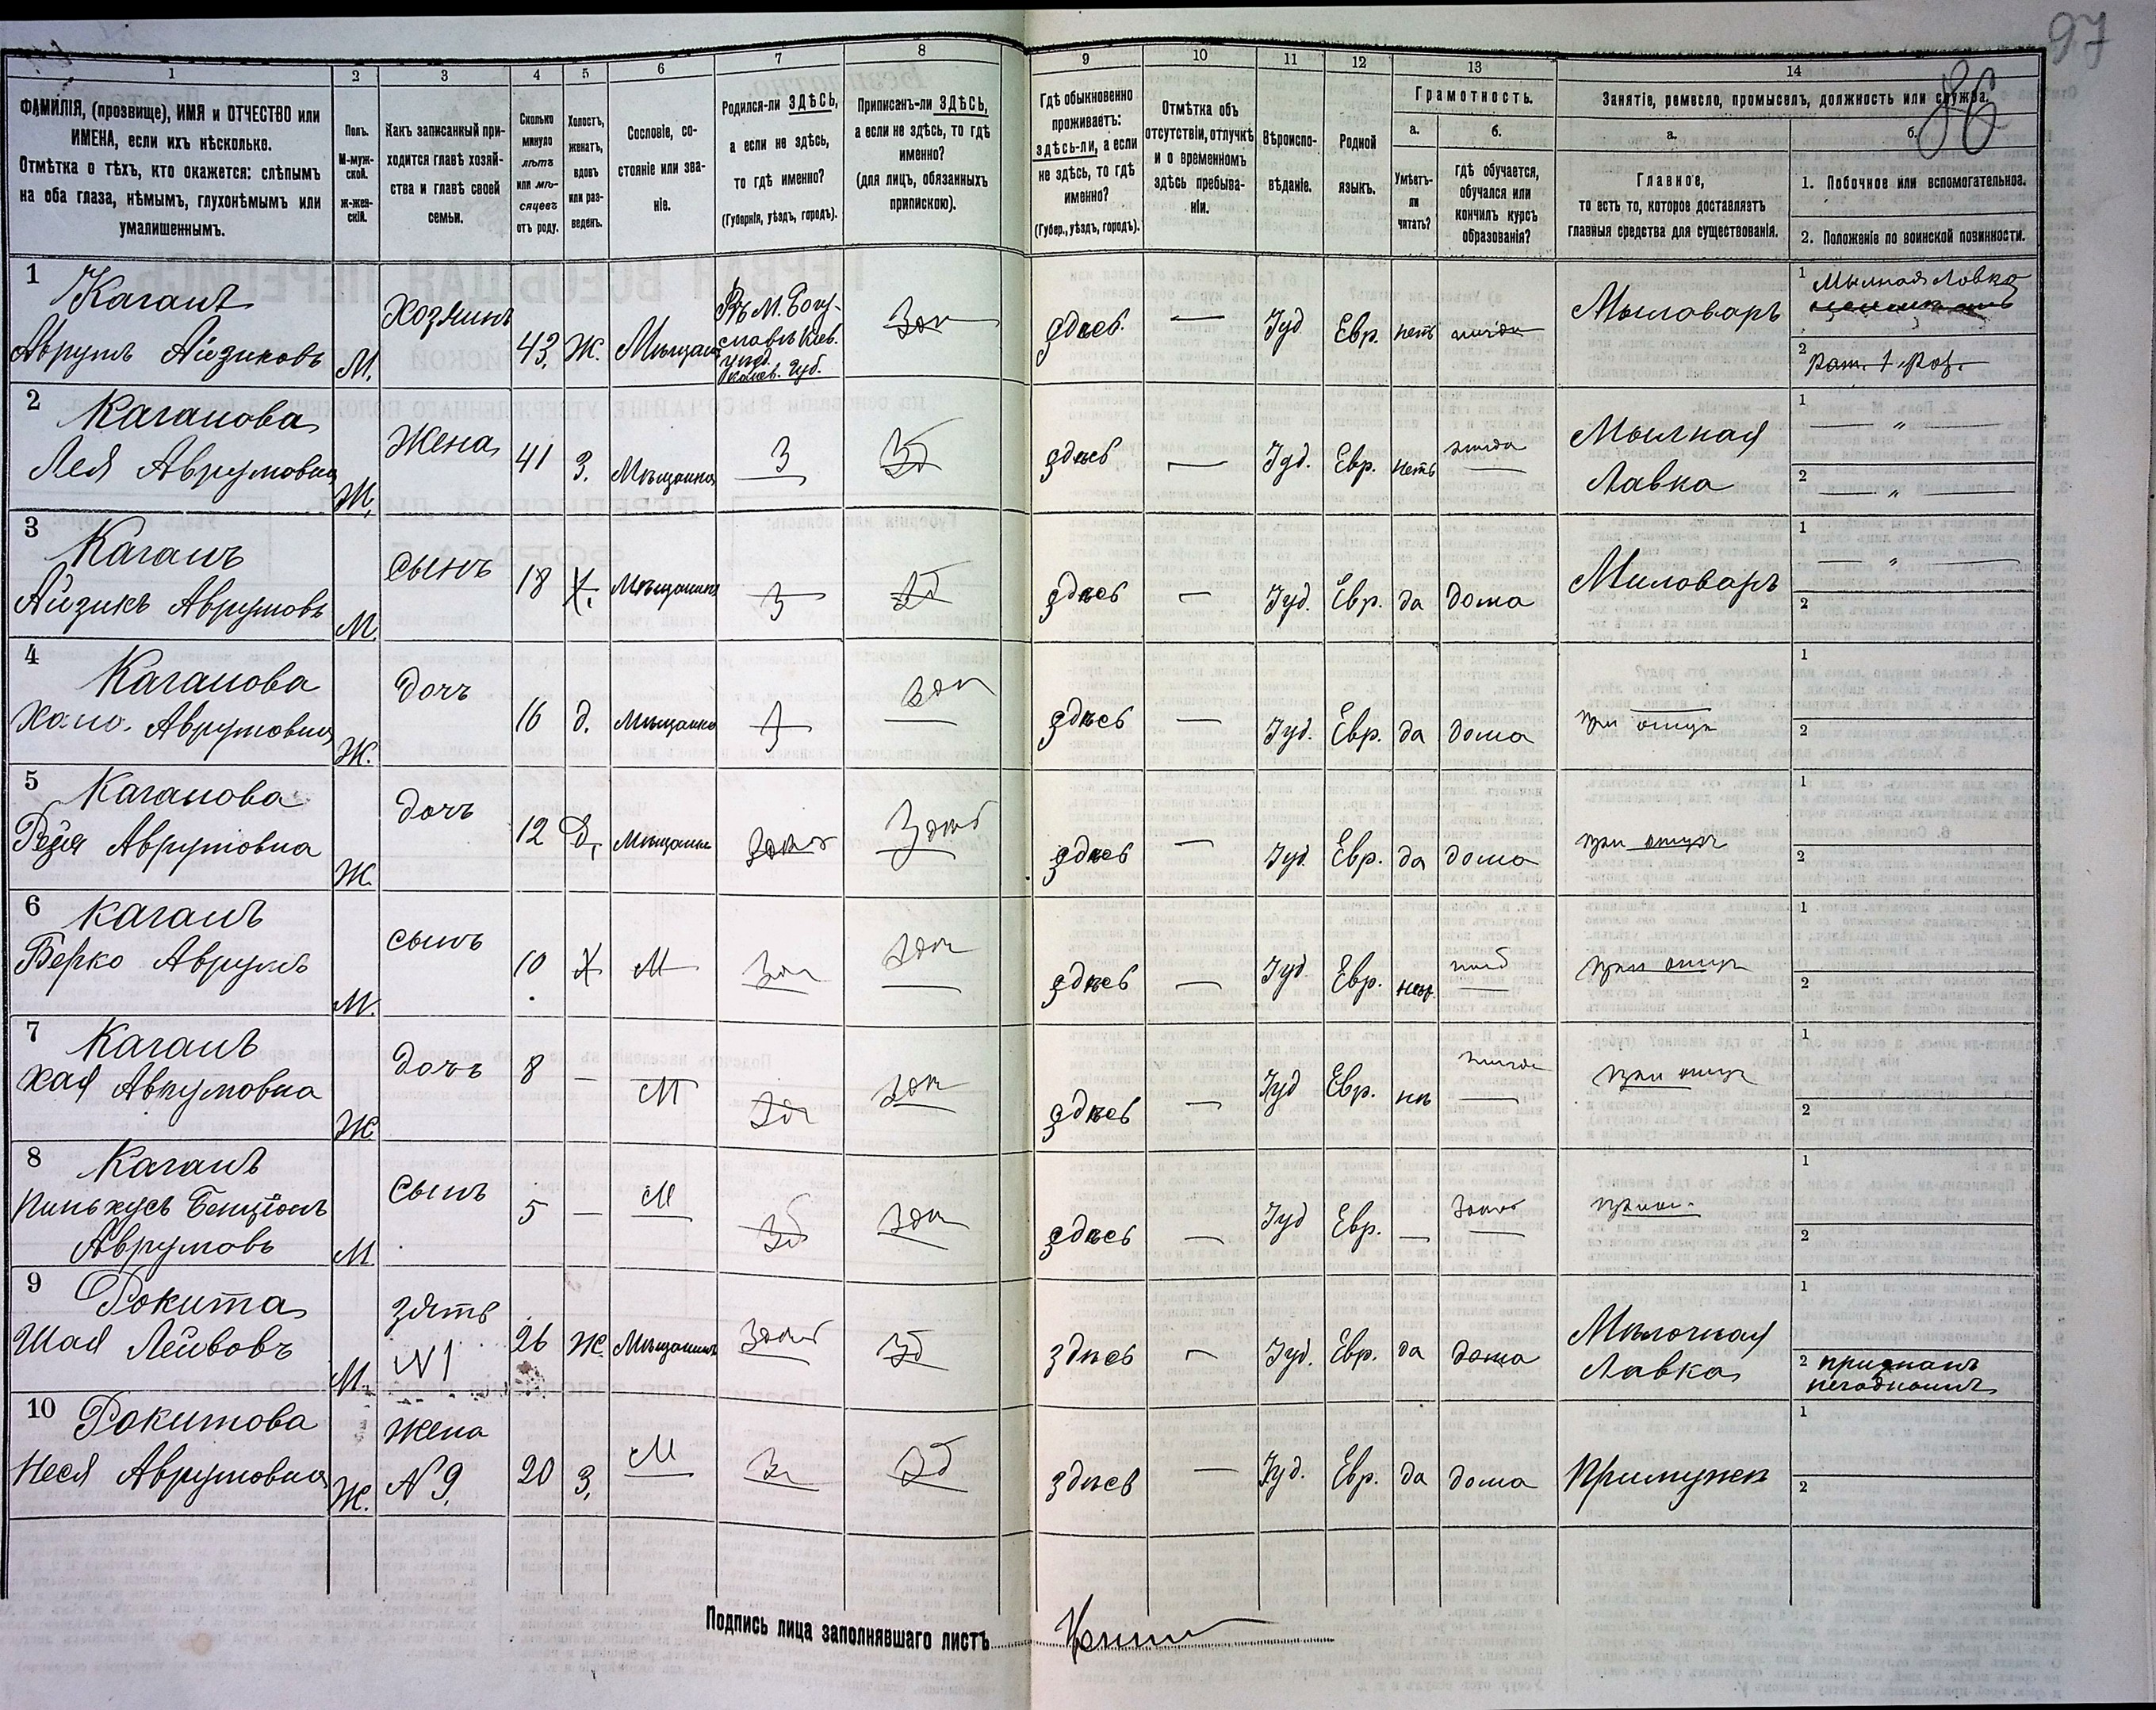 97
86
1 2 3 4 5 6 7 8 9 10 11 12 13 14
ФАМИЛІЯ, (прозвище), ИМЯ и ОТЧЕСТВО или
ИМЕНА, если ихъ нѣсколько.
Отмѣтка о тѣхъ, кто окажется: слѣпымъ
на оба глаза, нѣмымъ, глухонѣмымъ или
умалишеннымъ.
Полъ.
М-муж-
ской.
ж-жен-
скій.
Какъ записанный при-
ходится главѣ хозяй-
ства и главѣ своей
семьи.
Сколько
минуло
лѣтъ
или мѣ-
сяцевъ
отъ роду.
Холостъ,
женатъ,
вдовъ
или раз-
веденъ.
Сословіе, со-
стояніе или зва-
ніе.
Родился-ли ЗДѢСЬ,
а если не здѣсь,
то гдѣ именно?
(Губернія, уѣздъ, городъ).
Приписанъ-ли ЗДѢСЬ,
а если не здѣсь, то гдѣ
именно?
(для лицъ, обязанныхъ
припискою).
Гдѣ обыкновенно
проживаетъ:
здѣсь-ли, а если
не здѣсь, то гдѣ
именно?
(Губер., уѣздъ, городъ).
Отмѣтка объ
отсутствіи, отлучкѣ
и о временномъ
здѣсь пребыва-
ніи.
Вѣроиспо-
вѣданіе.
Родной
языкъ.
Грамотность.
а.
Умѣетъ-
ли
читать?
б.
гдѣ обучается,
обучался или
кончилъ курсъ
образованія?
Занятіе, ремесло, промыселъ, должность или служба.
а.
Главное,
то есть то, которое доставляетъ
главныя средства для существованія.
б.
1. Побочное или вспомогательное.
2. Положеніе по воинской повинности.
1 Каганъ
Аврумъ Айзиковъ М. Хозяинъ 43. Ж. Мѣщан
Въ М. Богу-
славѣ Кіев.
здѣсь. — Іуд Евр. нетъ Мыловаръ
1 Мылная Лавка
2
2 Каганова
Лея Аврумовна Ж. Жена 41 З. Мѣщанка З Зд здѣсь — Іуд. Евр. нетъ
Мылная
Лавка
1 — " —
2 — " —
3 Каганъ
Айзикъ Аврумовъ М. сынъ 18 Х. Мѣщанин З Зд здѣсь — Іуд. Евр. да дома Миловаръ
1 — " —
2
4 Каганова
Аврумовна Ж. дочъ 16 д. Мѣщанка З здѣсь — Іуд. Евр. да дома при отцѣ
1
2
5 Каганова
Рейзя Аврумовна Ж. дочъ 12 Д. Мѣщанка здѣсь — Іуд. Евр. да дома при отцѣ
1
2
6 Каганъ
Берко Аврумъ М. сынъ 10 Х М здѣсь — Іуд Евр. при отцѣ
1
2
7 Каганъ
Хая Аврумовна Ж дочь 8 — М здѣсь — Іуд Евр. при отцѣ
1
2
8 Каганъ
Пиньхусъ Бенціонъ
Аврумовъ М. Сынъ 5 — М здѣсь — Іуд Евр. —
1
2
9 Рокита
Шая Лейвовъ М. зять N 1 26 Ж. Мѣщанинъ Зд здѣсь — Іуд. Евр. да дома
Мѣлочная
Лавка
1
2 признанъ
негоднымъ
10 Рокитова
Неся Аврумовна Ж. Жена N 9. 20 З. М Зд здѣсь — Іуд. Евр. да дома При мужѣ
1
2
Подпись лица заполнявшаго листъ